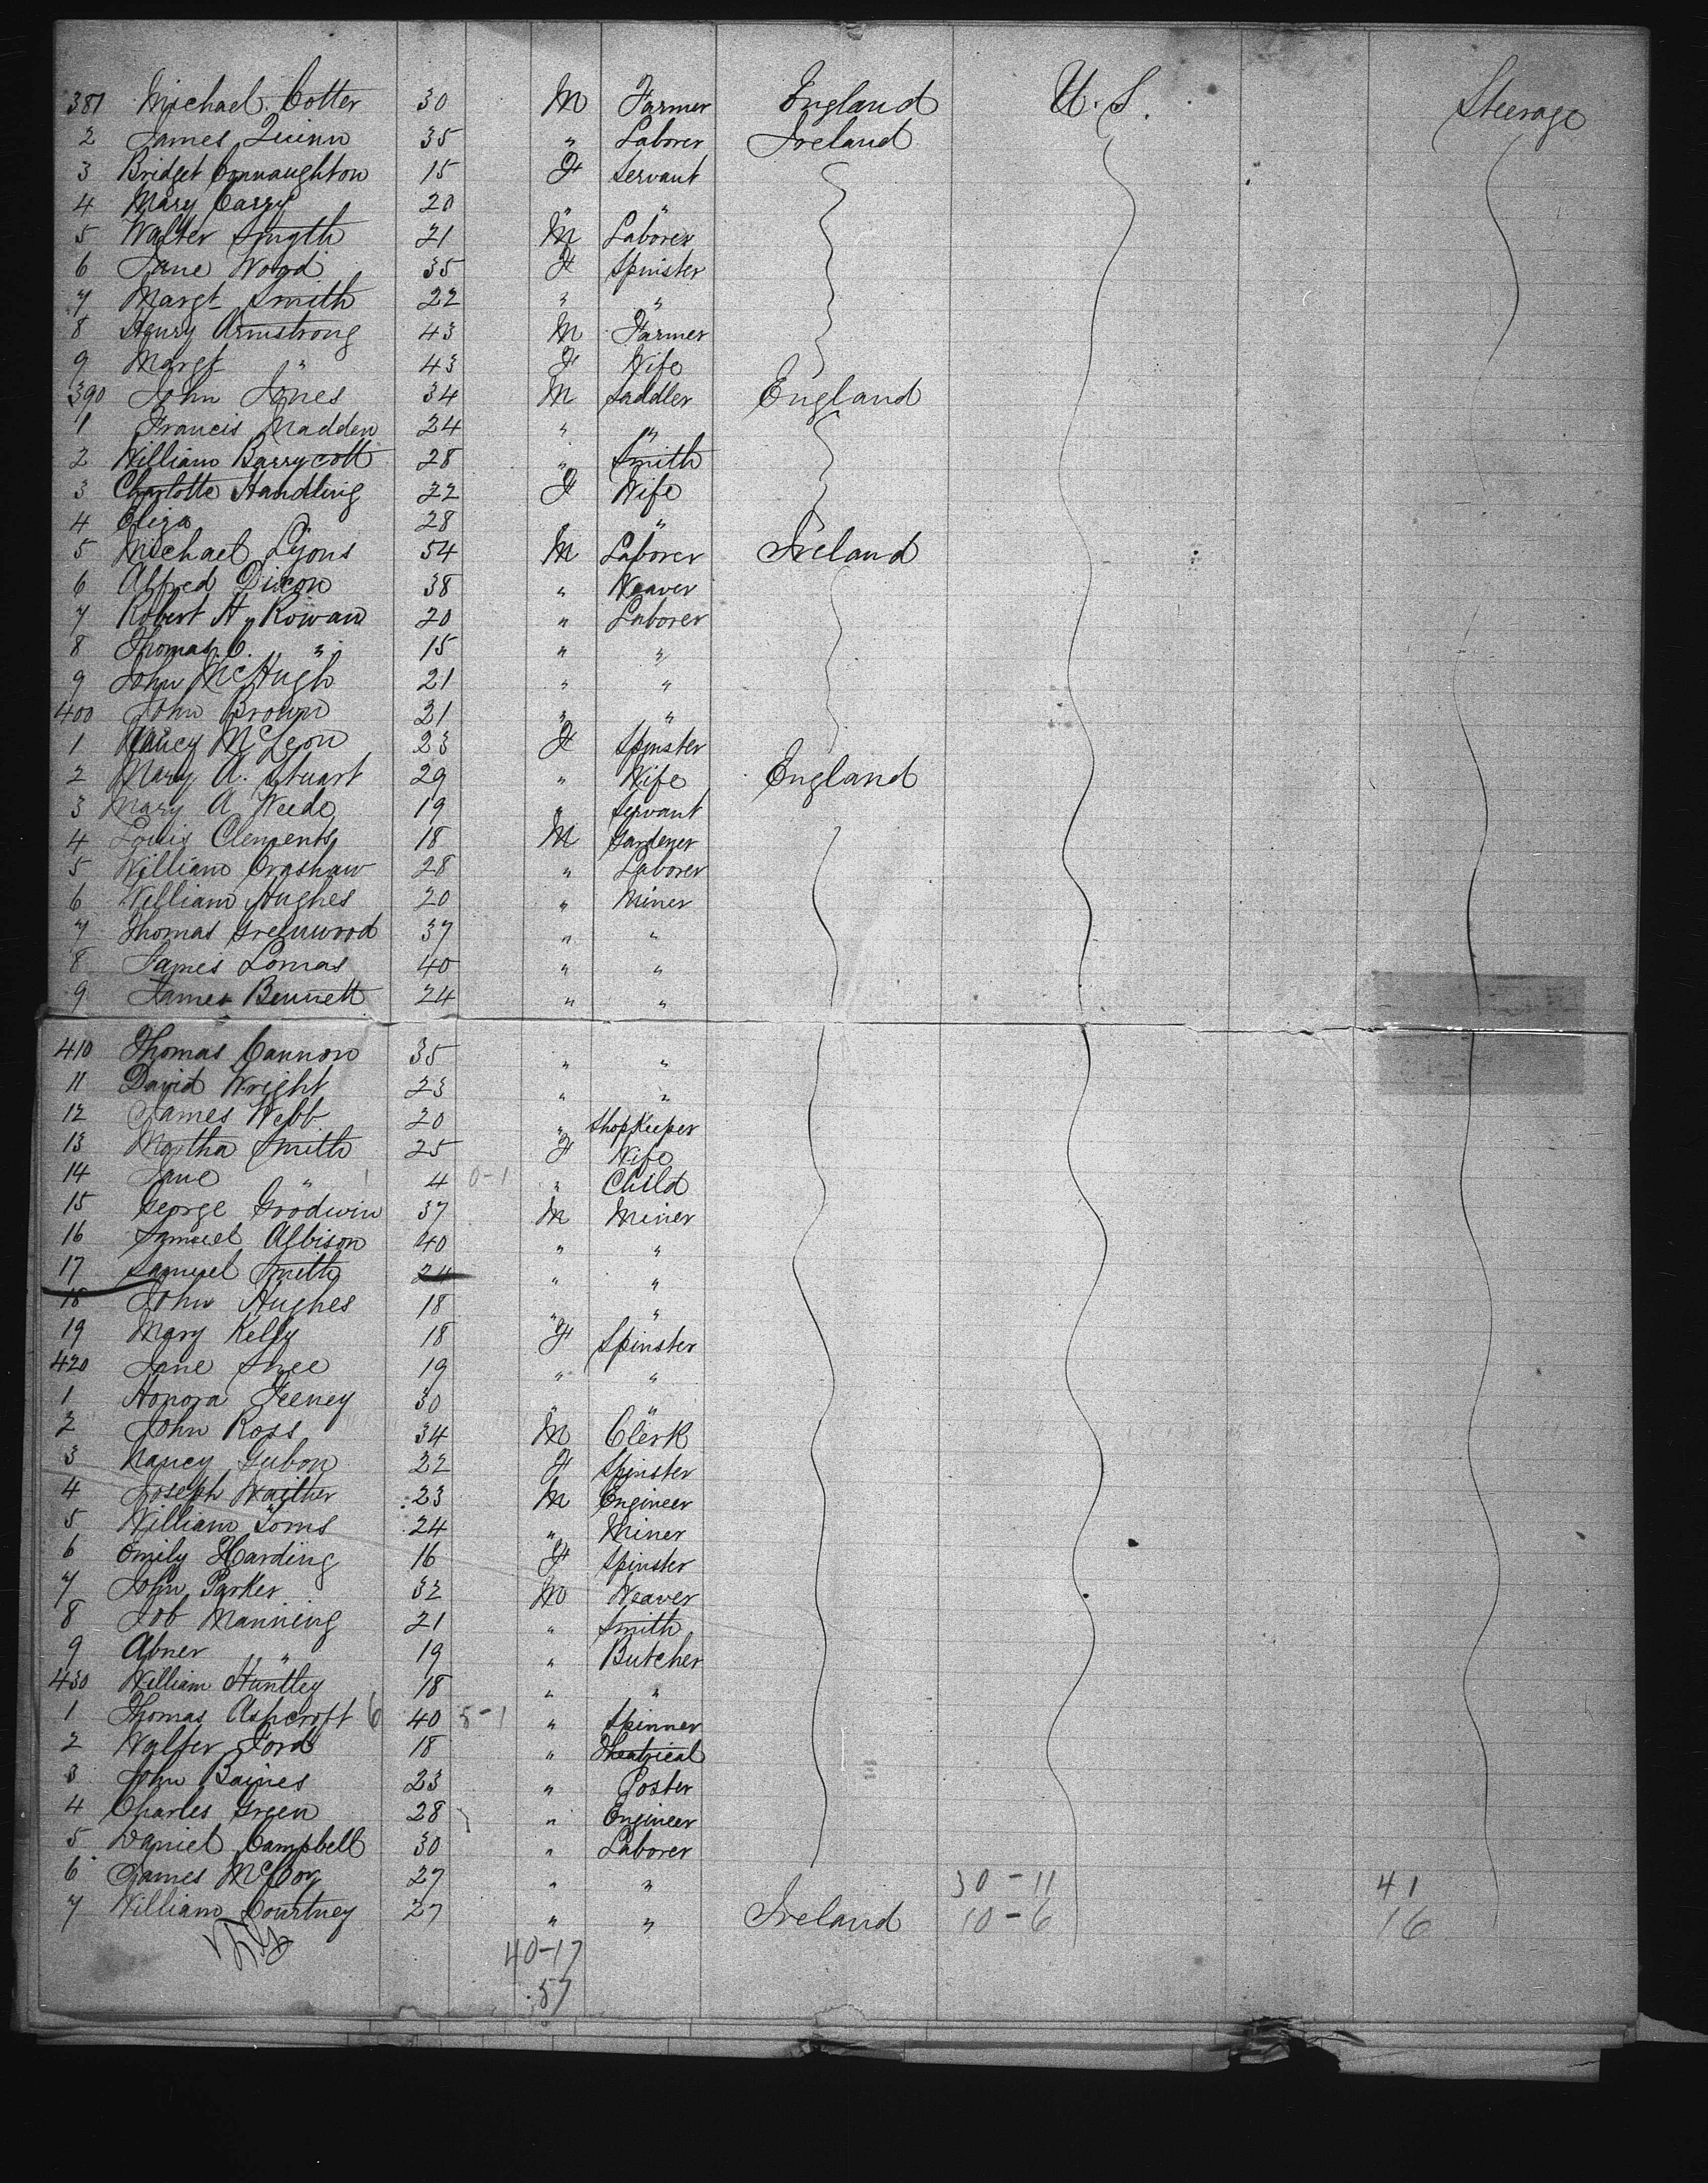 381 Michael Cotter 30 M Farmer England U.S. Steerage
2 James Quinn 35 " Laborer Ireland
3 Bridget Connaughton 15 F Servant
4 Mary Carry 20 " "
5 Walter Smyth 21 M Laborer
6 Jane Wood 35 F Spinster
7 Margt Smith 22 " "
8 Henry Armstrong 43 M Farmer
9 Margt " 43 F Wife
390 John Jones 34 M Saddler England
1 Francis Madden 24 " "
2 William Barrycott 28 " Smith
3 Charlotte Handling 22 F Wife
4 Eliza " 28 "
5 Michael Lyons 54 M Laborer Ireland
6 Alfred Dixon 38 " Weaver
7 Robert H. Rowan 20 " Laborer
8 Thomas C. " 15 " "
9 John McHugh 21 " "
400 John Brown 21 " "
1 Nancy McLeon 23 F Spinster
2 Mary A. Stuart 29 " Wife England
3 Mary A Weede 19 " Servant
4 Louis Clements 18 M Gardener
5 William Crashaw 28 " Laborer
6 William Hughes 20 " Miner
7 Thomas Greenwood 37 " "
8 James Lomas 40 " "
9 James Bennett 24 " "
410 Thomas Cannon 35 " "
11 David Wright 23 " "
12 James Webb 20 " Shopkeeper
13 Martha Smith 25 F Wife
14 Jane " 4 0-1 " Child
15 George Goodwin 37 M Miner
16 Samuel Albison 40 " "
17 Samuel Smith 24 " "
18 John Hughes 18 " "
19 Mary Kelly 18 F Spinster
420 Jane Shee 19 " "
1 Honora Feeney 30 " "
2 John Ross 34 M Clerk
3 Nancy Gubon 22 F Spinster
4 Joseph Waither 23 M Engineer
5 William Toms 24 " Miner
6 Emily Harding 16 F Spinster
7 John Parker 32 M Weaver
8 Job Manning 21 " Smith
9 Abner " 19 " Butcher
430 William Huntley 18 " "
1 Thomas Ashcroft 6 40 5-1 " Spinner
2 Walter Ford 18 " Theatrical
3 John Baines 23 " Poster
4 Charles Green 28 " Engineer
5 Daniel Campbell 30 " Laborer
6 James McCoy 27 " " 30-11 41
7 William Courtney 27 " " Ireland 10-6 16
40-17
57